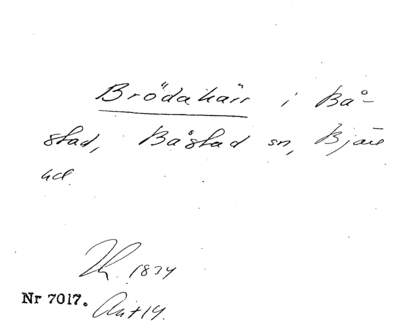 Brödakärr i Bå-
stad, Båstad sn, Bjäre
hd.
1834
Nr 7017. Ant 14.